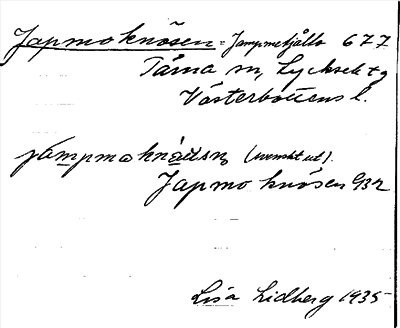 Japmoknösen = Jampmetjåkko 677
Tärna sn, Lycksele tg
Västerbottens l.
jámpmoknåusn (svenskt utt.).
Japmo knösen G32
Lisa Lidberg 1935